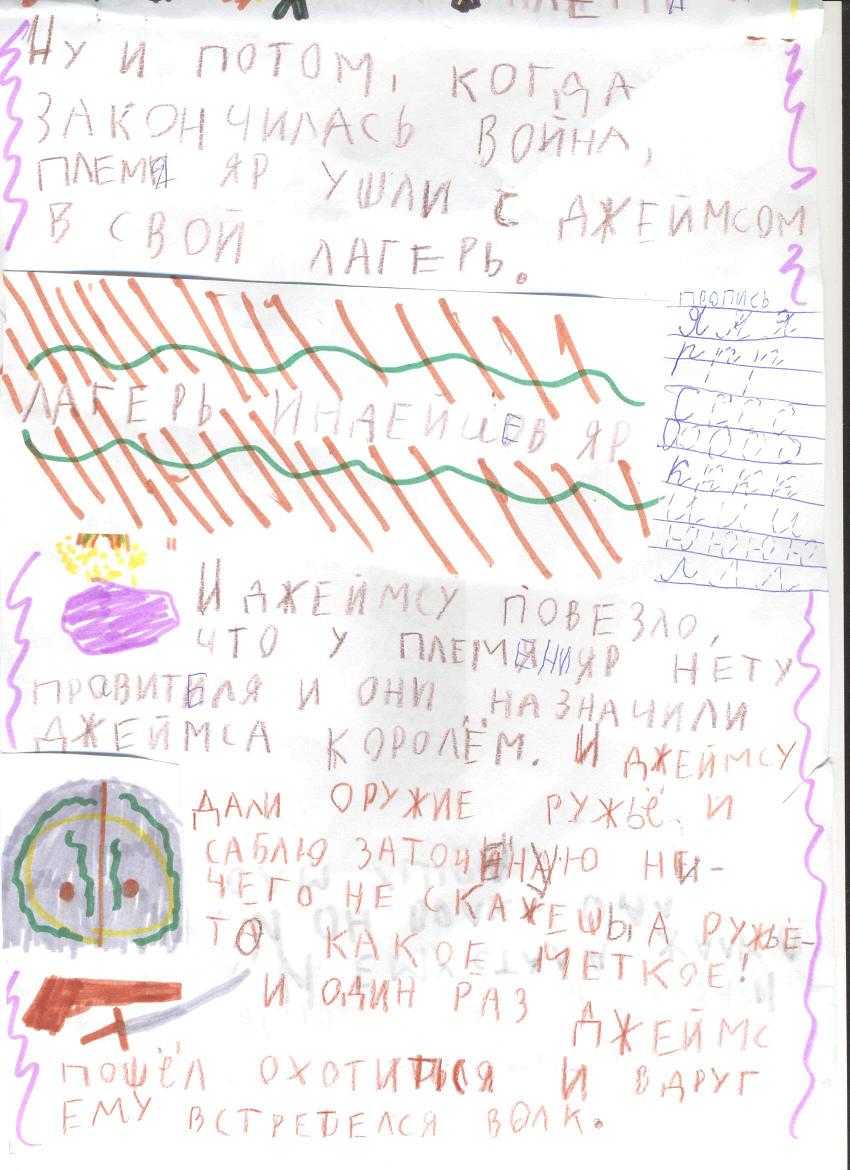 НУ И ПОТОМ, КОГДА
ЗАКОНЧИЛАСЬ ВОЙНА,
ПЛЕМЯ ЯР УШЛИ С ДЖЕЙМСОМ
В СВОЙ ЛАГЕРЬ.
ПРОПИСЬ
Я Я Я
р
С С С С
О О О О О
К К К К
И И И
Ю Ю Ю Ю
Л Л Л
ЛАГЕРЬ ИНДЕЙЦЕВ ЯР
И ДЖЕЙМСУ ПОВЕЗЛО,
ЧТО У ПЛЕМЕНИ ЯР НЕТУ
ПРАВИТЕЛЯ И ОНИ НАЗНАЧИЛИ
ДЖЕЙМСА КОРОЛЁМ. И ДЖЕЙМСУ
ДАЛИ ОРУЖИЕ РУЖЬЁ И
САБЛЮ ЗАТОЧЕНАЮ НИ-
ЧЕГО НЕ СКАЖЕШЬ А РУЖЬЁ-
ТО КАКОЕ МЕТКОЕ!
И ОДИН РАЗ ДЖЕЙМС
ПОШЁЛ ОХОТИТЬСЯ И ВДРУГ
ЕМУ ВСТРЕТЕЛСЯ ВОЛК.